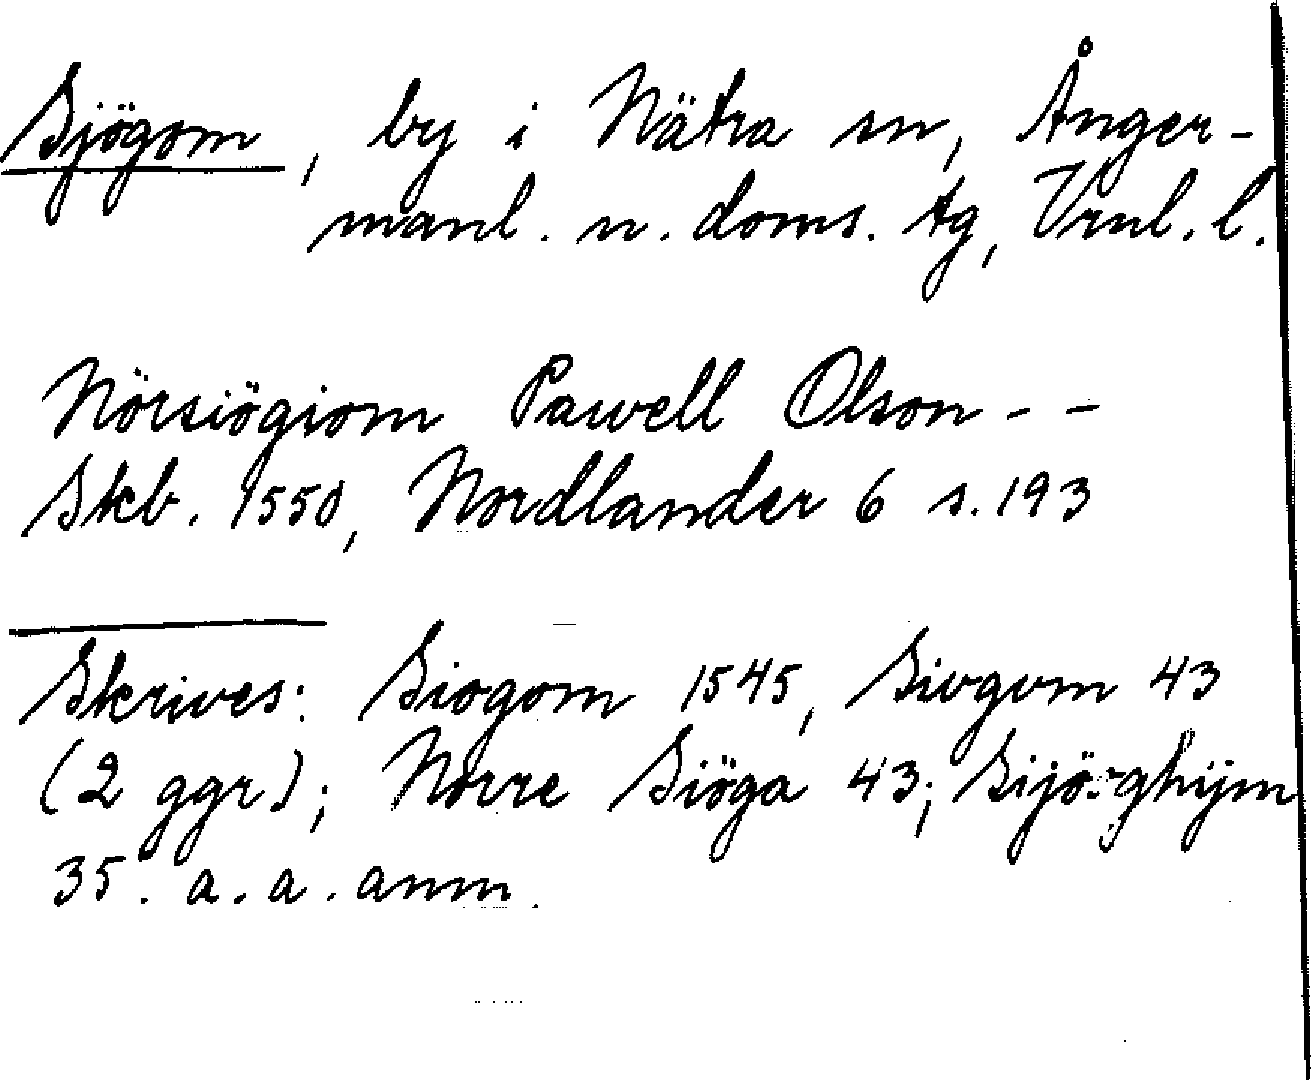 Sjögom, by i Nätra sn, Ånger-
manl. n. doms. tg, Vrnl. l.
Nörsiögiom Pawell Olson - -
Skb. 1550, Nordlander 6 s. 193
Skrives: Siogom 1545, Siogom 43
(2 ggr); Norre Siöga 43; Sijöghijm
35. a. a. anm.